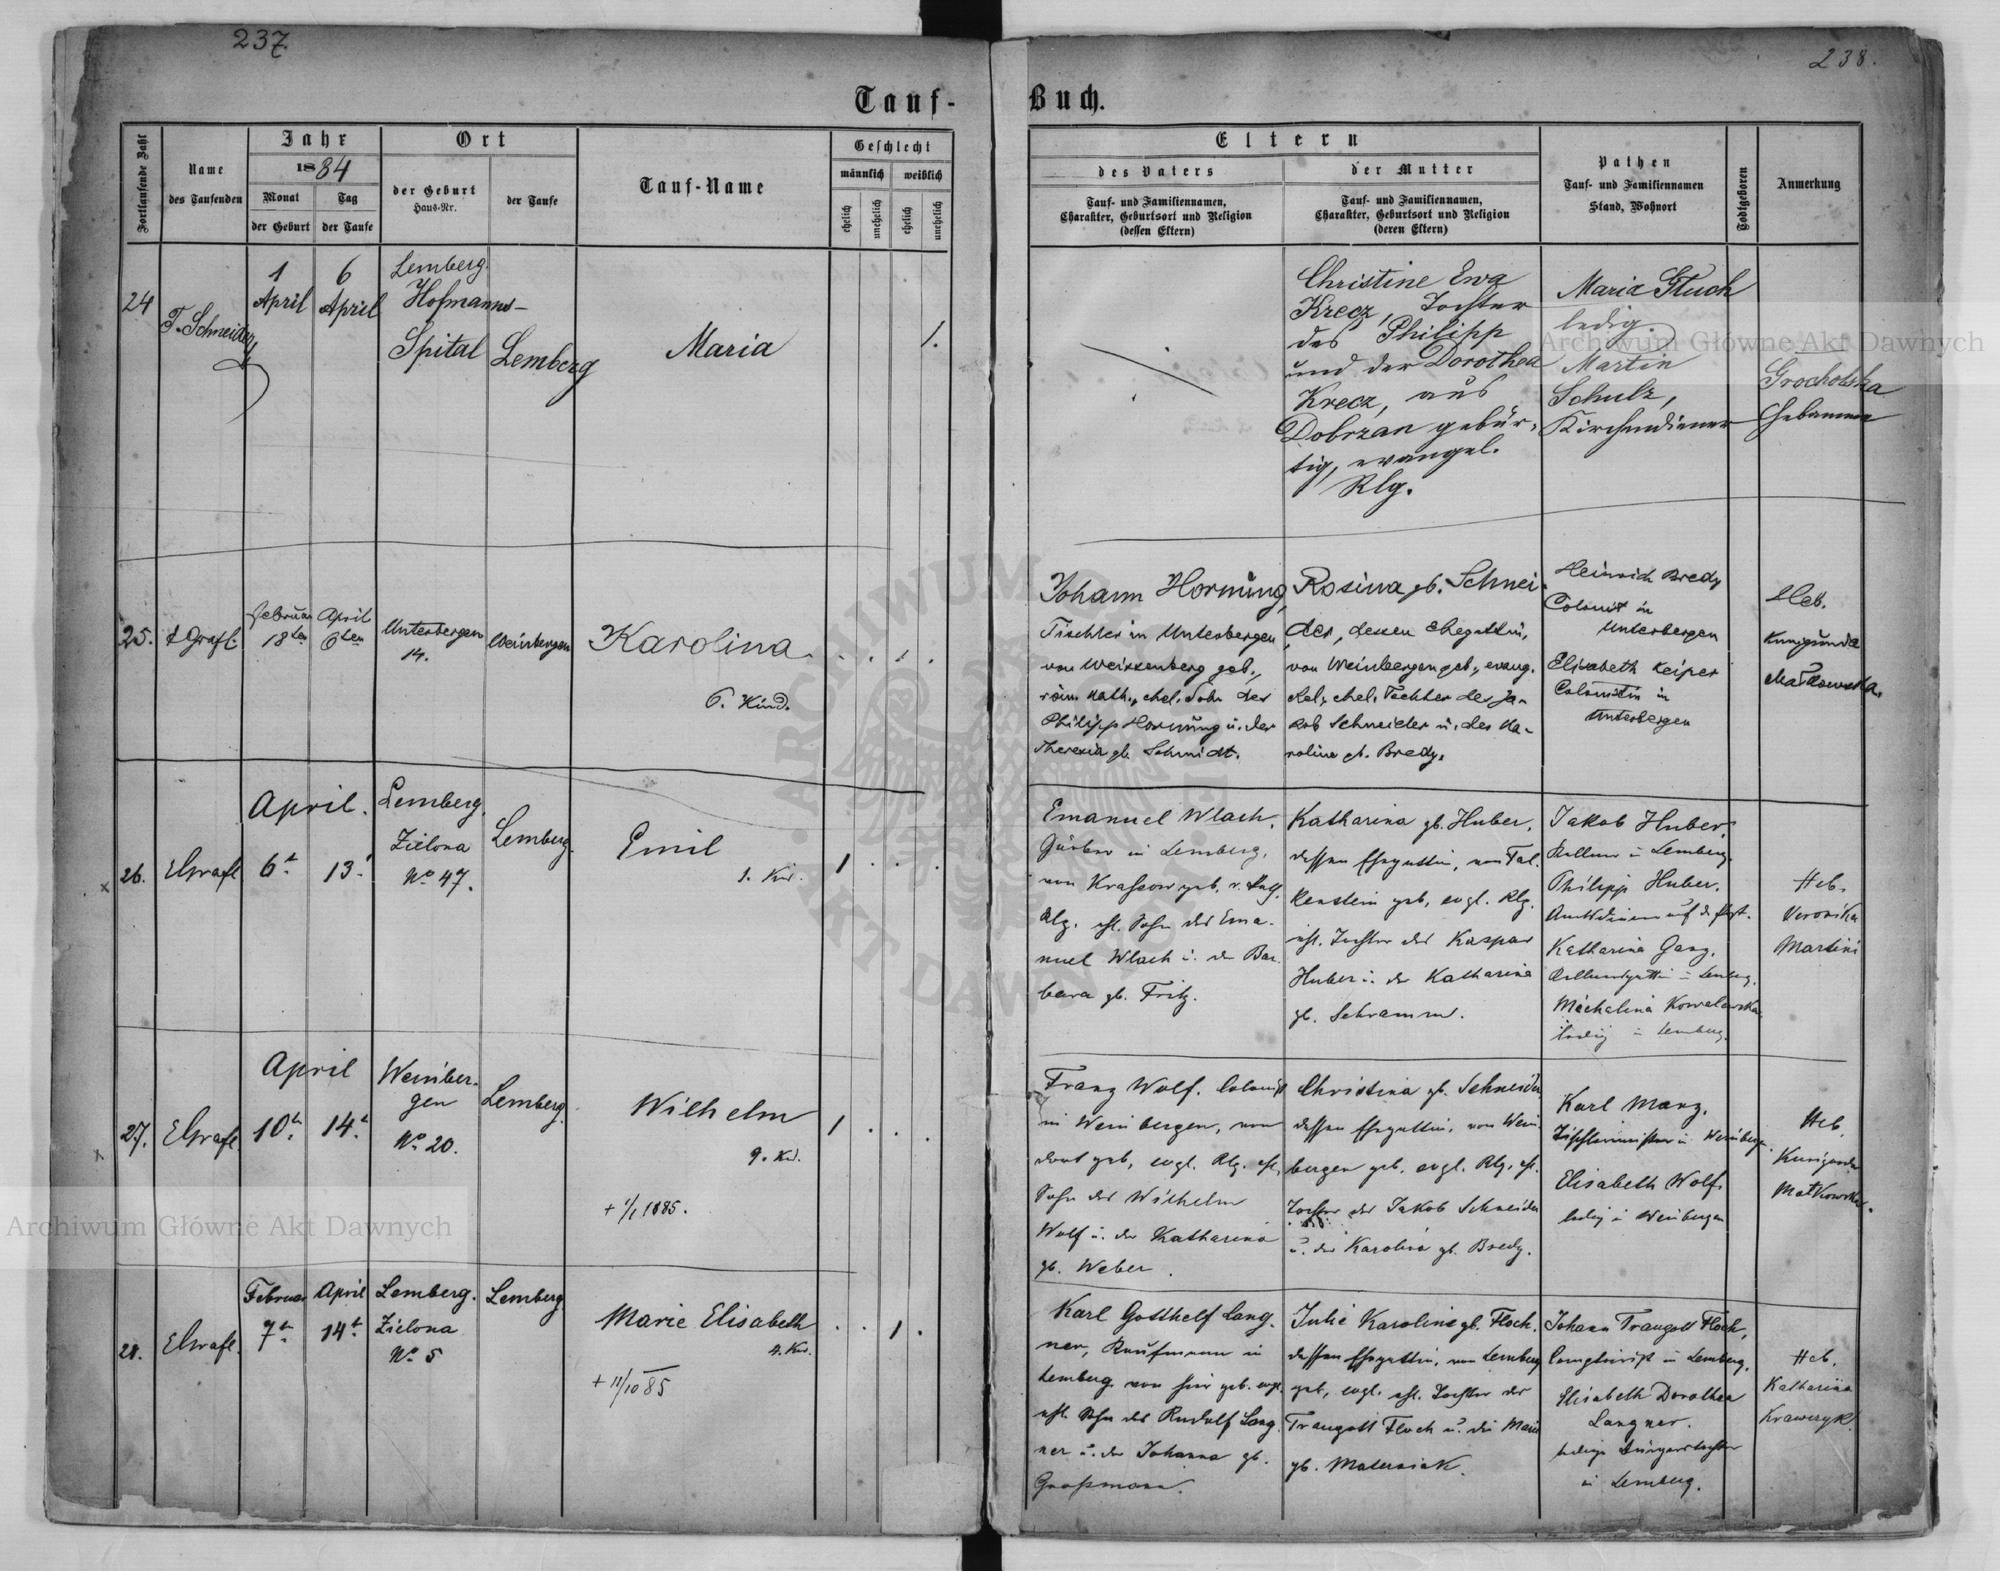 237.
238.
Tauf-
Buch.
Fortlaufende Zahl
Name
des Taufenden
Jahr
1884
Monat
der Geburt
Tag
der Taufe
Ort
der Geburt
Haus-Nr.
der Taufe
Tauf-Name
Geschlecht
männlich
weiblich
ehelich
unehelich
ehelich
unehelich
Eltern
des Vaters
Tauf- und Familiennamen,
Charakter, Geburtsort und Religion
(dessen Eltern)
der Mutter
Tauf- und Familiennamen,
Charakter, Geburtsort und Religion
(deren Eltern)
Pathen
Tauf- und Familiennamen
Stand, Wohnort
Todtgeboren
Anmerkung
24
T. Schneider
1
April
6
April
Lemberg.
Hofmanns-
Spital
Lemberg
Maria
1.
Christine Ewa
Krecz, Tochter
des Philipp
und der Dorothea
Krecz, aus
Dobrzan gebür-
tig, evangel.
Rlg.
Maria
ledig.
Martin
Schulz,
Kirchendiener
Grocholska
Hebamme
25.
Grafl.
Februar
18ten
April
6ten
Unterbergen
14.
Weinbergen
Karolina
6. Kind.
Johann Hornung,
Tischler in Unterbergen
von Weissenberg geb.,
röm. kath., ehel. Sohn des
Philipp Hornung u. der
Theresia gb. Schmidt.
Rosina gb. Schnei-
der, dessen Ehegattin,
von Weinbergen geb., evang.
Rel., ehel. Tochter des Ja-
kob Schneider u. der Ka-
rolina gb. Bredy.
Heinrich Bredy
Colonist in
Unterbergen
Elisabeth Keiper
Colonistin in
Unterbergen
Heb.
Kunigunda
Matkowska.
26.
EGrafl
April.
6t.
13t
Lemberg.
Zielona
No 47.
Lemberg.
Emil
1. Kd.
1
Emanuel Wlach.
in Lemberg,
von geb,
Rlg. ehl. Sohn des Ema-
nuel Wlach u. der Bar-
bara gb. Fritz.
Katharina gb. Huber,
dessen Ehegattin, von Fal-
kenstein geb, evgl. Rlg.
ehl. Tochter des Kaspar
Huber u. der Katharina
gb. Schramm.
Jakob Huber,
Kellner in Lemberg.
Philipp Huber,
Amtsdiener auf d.
Katharina Ganz,
Kellnersgattin in Lemberg.
Michalina Kowalewska
ledig in Lemberg.
Heb.
Veronika
Martini
27.
EGrafl.
April
10t.
14.t
Weinber-
gen
No 20.
Lemberg.
Wilhelm
9. Kd.
+ 1/1 1885.
1
Franz Wolf. Colonist
in Weinbergen, von
dort geb, evgl. Rlg. ehl,
Sohn des Wilhelm
Wolf u. der Katharina
gb. Weber.
Christina gb. Schneider
dessen Ehegattin, von Wein-
bergen geb. evgl. Rlg. ehl.
Tochter des Jakob Schneider
u. der Karolina gb. Bredy.
Karl Manz,
Tischlermeister in Weinbergen
Elisabeth Wolf,
ledig in Weinbergen
Heb.
Kunigunda
Matkowska.
28.
EGrafl.
Februar
7t.
April
14t.
Lemberg.
Zielona
No 5
Lemberg
Marie Elisabeth
4. Kd.
+ 11/10 85
1
Karl Gotthelf Lang-
ner, Kaufmann in
Lemberg von hier geb. evgl.
ehl. Sohn des Rudolf Lang-
ner u. der Johanna gb.
Großmann.
Julie Karoline gb. Floch,
dessen Ehegattin, von Lemberg
geb, evgl. ehl. Tochter des
Traugott Floch u. der Marie
gb. Materniak.
Johann Traugott Floch,
Comptoirist in Lemberg.
Elisabeth Dorothea
Langner.
ledige Bürgerstochter
in Lemberg.
Heb.
Katharina
Krawczyk
Archiwum Główne Akt Dawnych
Archiwum Główne Akt Dawnych
ARCHIWUM
AKT DAWNYCH